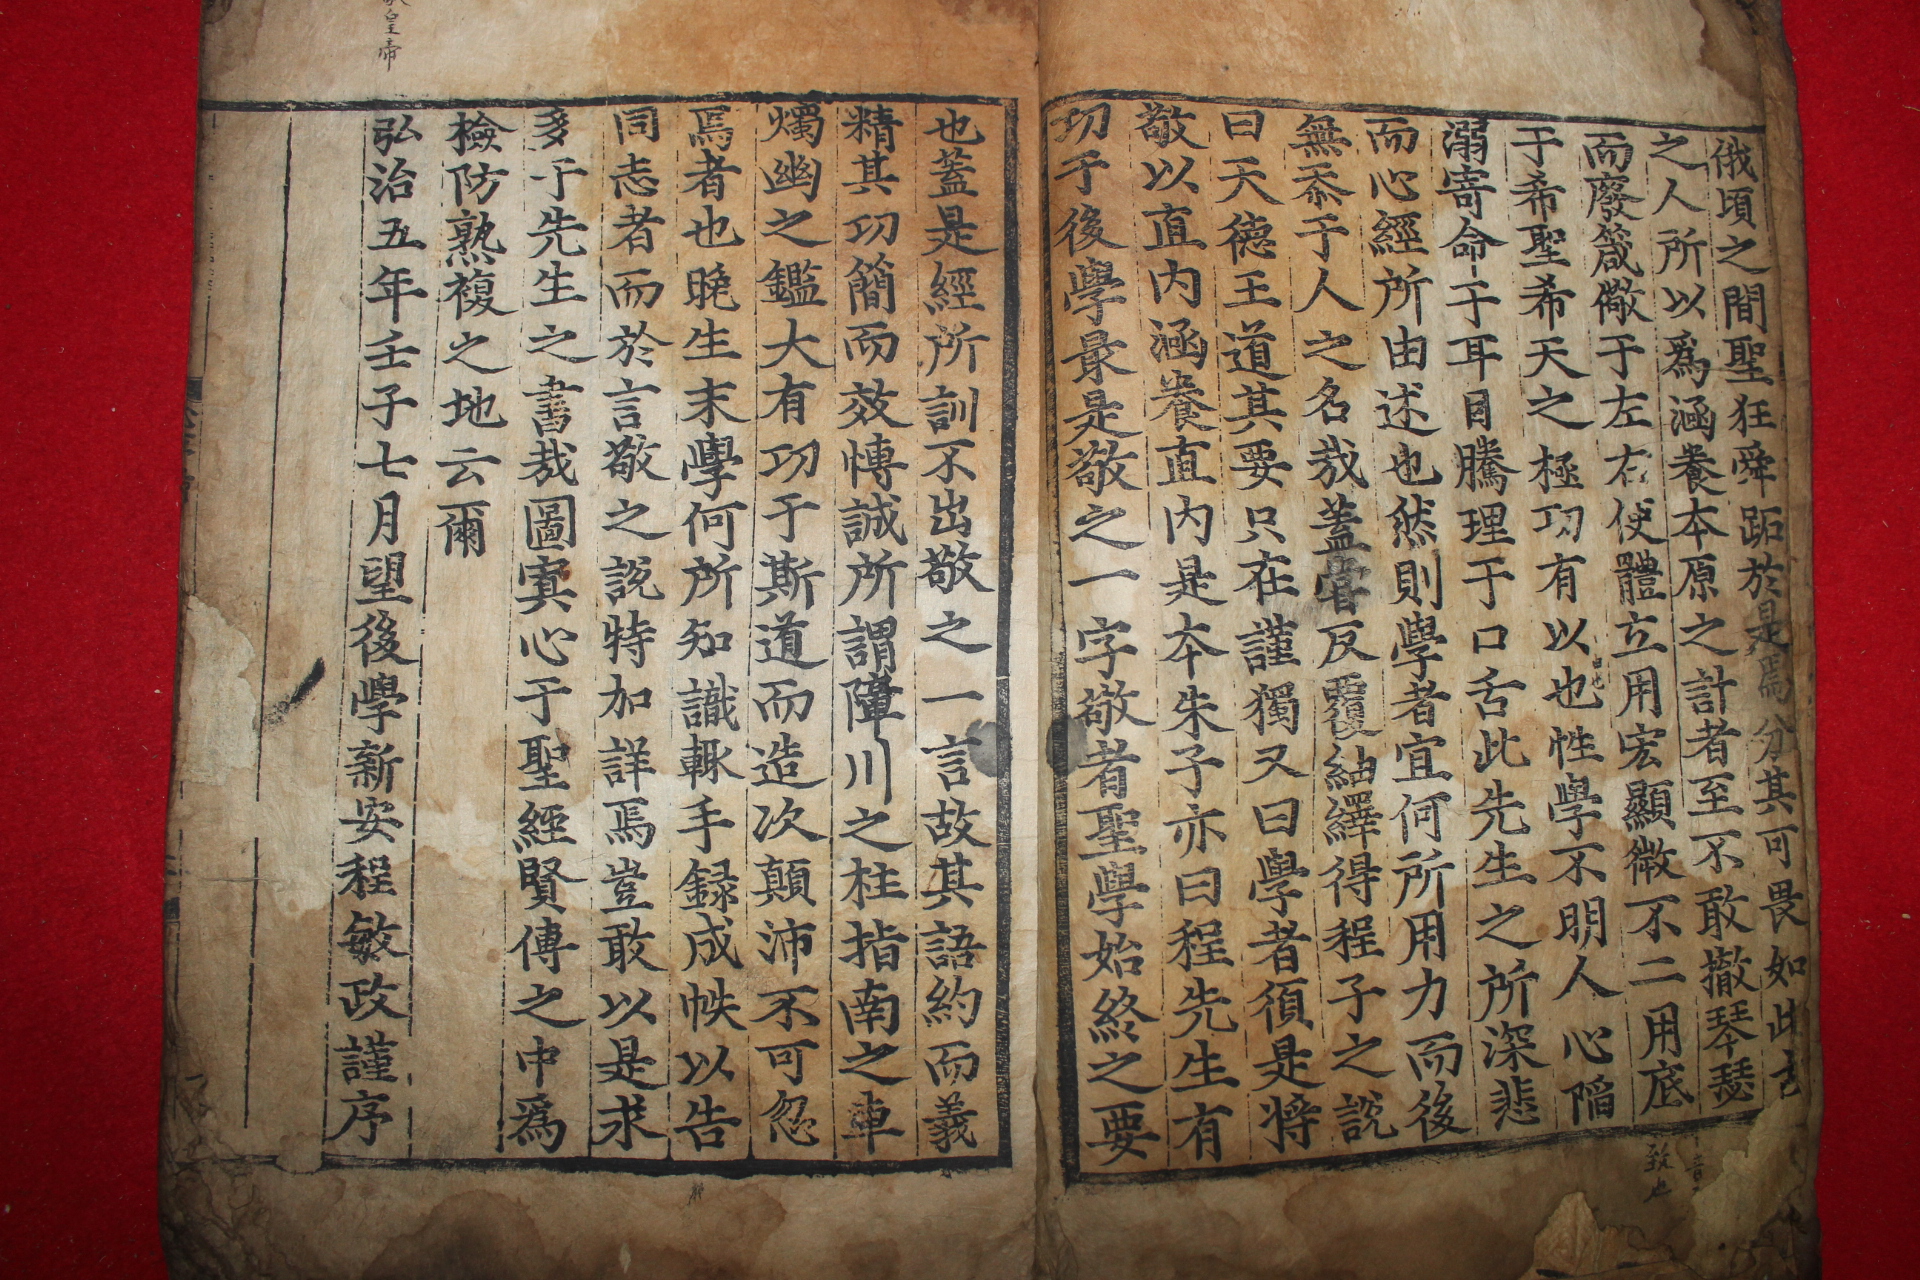 俄頃之間聖狂舜跖於是焉分其可畏如此
之人所以爲涵養本原之計者至不敢撤琴瑟
而廢箴儆于左右使體立用宏顯微不二用底
于希聖希天之極功有以也性學不明人心陷
溺寄命于耳目騰理于口舌此先生之所深悲
而心經所由述也然則學者宜何所用力而後
無忝于人之名哉蓋嘗反覆紬繹得程子之說
曰天德王道其要只在謹獨又曰學者須是將
敬以直内涵養直内是本朱子亦曰程先生有
功于後學最是敬之一字敬者聖學始終之要
也蓋是經所訓不出敬之一言故其語約而義
精其功簡而效愽誠所謂障川之柱指南之車
燭幽之鑑大有功于斯道而造次顛沛不可忽
焉者也晚生末學何所知識輒手録成帙以告
同志者而於言敬之說特加詳焉豈敢以是求
多于先生之書哉圖寘心于聖經賢傳之中爲
檢防熟複之地云爾
弘治五年壬子七月望後學新安程敏政謹序
皇帝